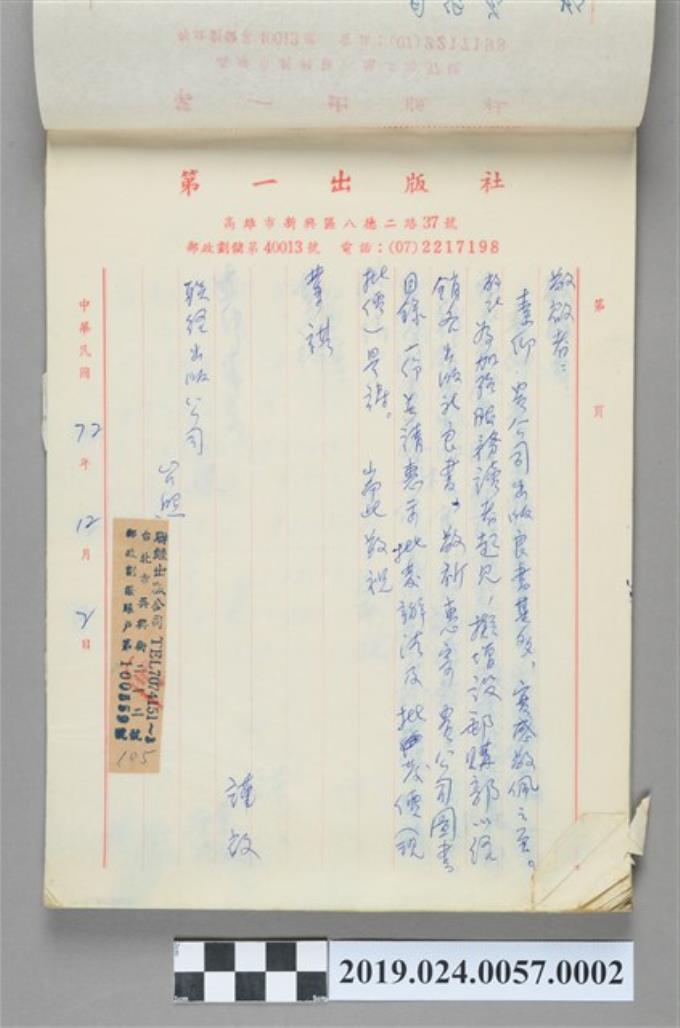 第一出版社
高雄市新興區八德二路37號
郵政劃儲第40013號 電話：(07)2217198
第 頁
敬啟者：
素仰 貴公司出版良書甚多，實感敬佩之至。
敝社為加強服務讀者起見，擬增設郵購部以經
銷各出版社良書。敬祈惠寄 貴公司圖書
目錄一份並請惠示批發辦法及批發價（現
批價）是禱。 耑此敬祝
業祺
聯經出版公司
台照
謹啟
中華民國72年12月2日
聯經出版公司 TEL7074151~3
台北市
郵政劃撥賬戶第100559號
195
2019.024.0057.0002